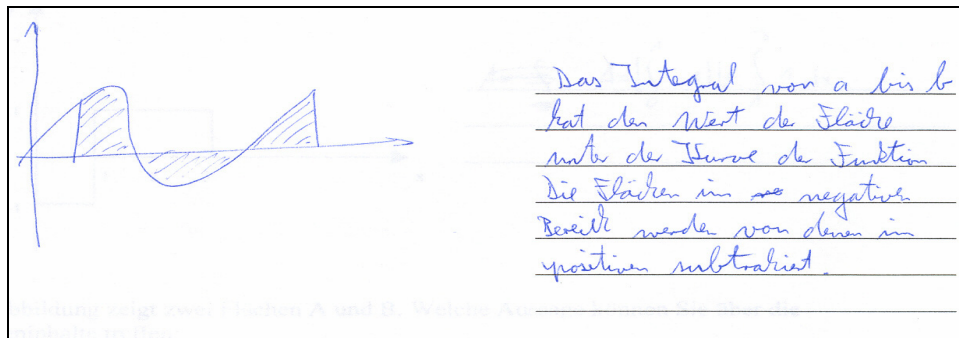 Das Integral von a bis b
hat den Wert der Fläche
unter der Kurve der Funktion
Die Flächen im negativen
Bereich werden von denen im
positiven subtrahiert.
bbildung zeigt zwei Flächen A und B. Welche Aussage können Sie über die